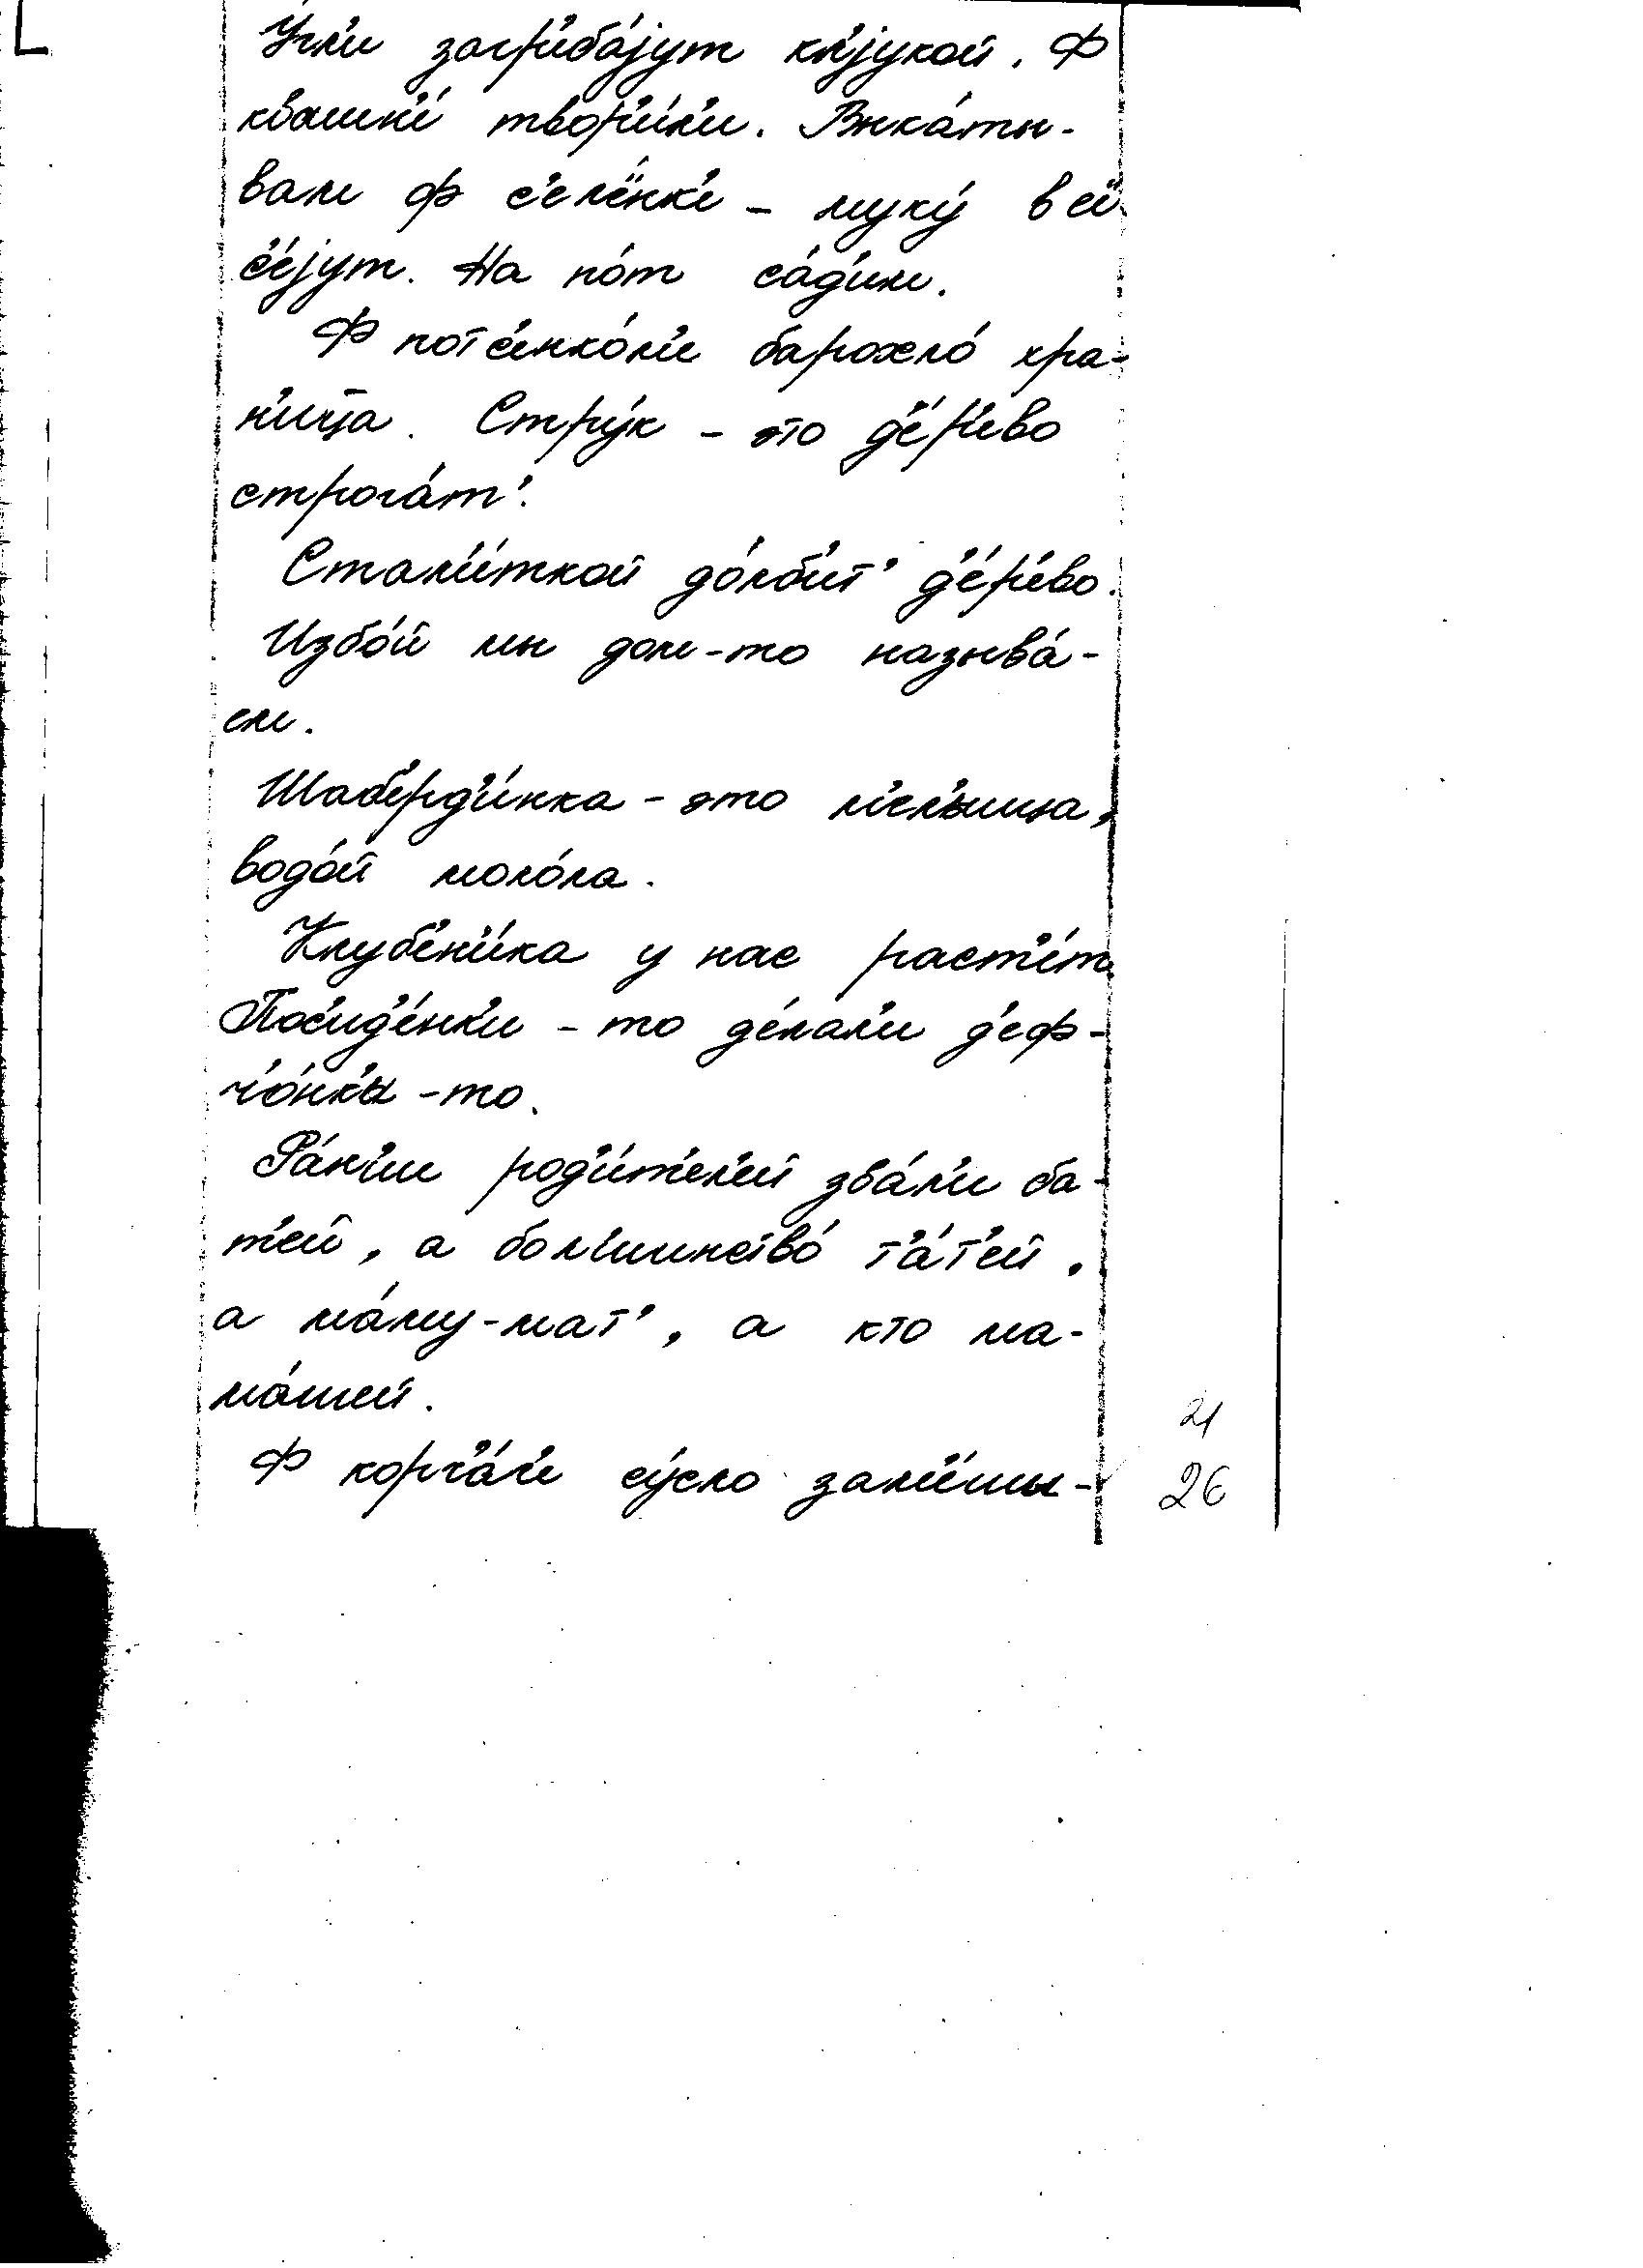 Угл'и загр'иба́jут кл'jукой. Ф
квашн'е́ твор'и́л'и. Выка́ты-
вам ф с'ел'ёнк'е – муку́ в ей
с'е́jут. На по́т са́д'им.
Ф пот'е́нком'е барохло́ хра-
н'иц̄а. Стру́к – это д'е́р'ево
строга́т'.
Стам'и́ткой до́лб'ит' д'е́р'ево.
Избо́й мы дом-то называ́-
ем.
Шаб'ерд'и́нка – это м'ел'ница,
водо́й моло́ла.
Клуб'ен'и́ка у нас раст'е́т.
Пос'ид'е́нк'и – то д'е́лал'и д'еф-
ч'о́нк'и -то.
Ра́н'ше род'и́т'ел'ей зва́л'и ба-
т'ей, а бол'шинство́ т'а́т'ей,
а ма́му-мат', а кто ма-
ма́шей.
Ф корч'а́г'е су́сло зам'е́шы-
21
26